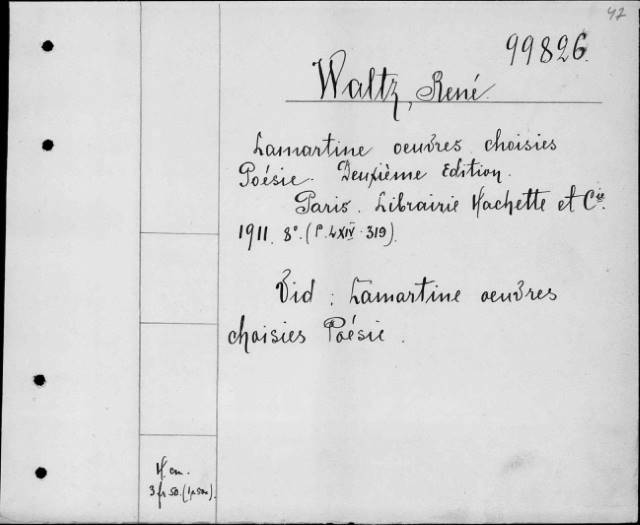 42
99826.
Waltz, René.
Lamartine oeuvres choisies
Poésie. Deuxième Edition.
Paris. Librairie Hachette et Cie.
1911. 8°. (P. LXIV-319).
Vid : Lamartine oeuvres
choisies Poésie.
3 fr 50.